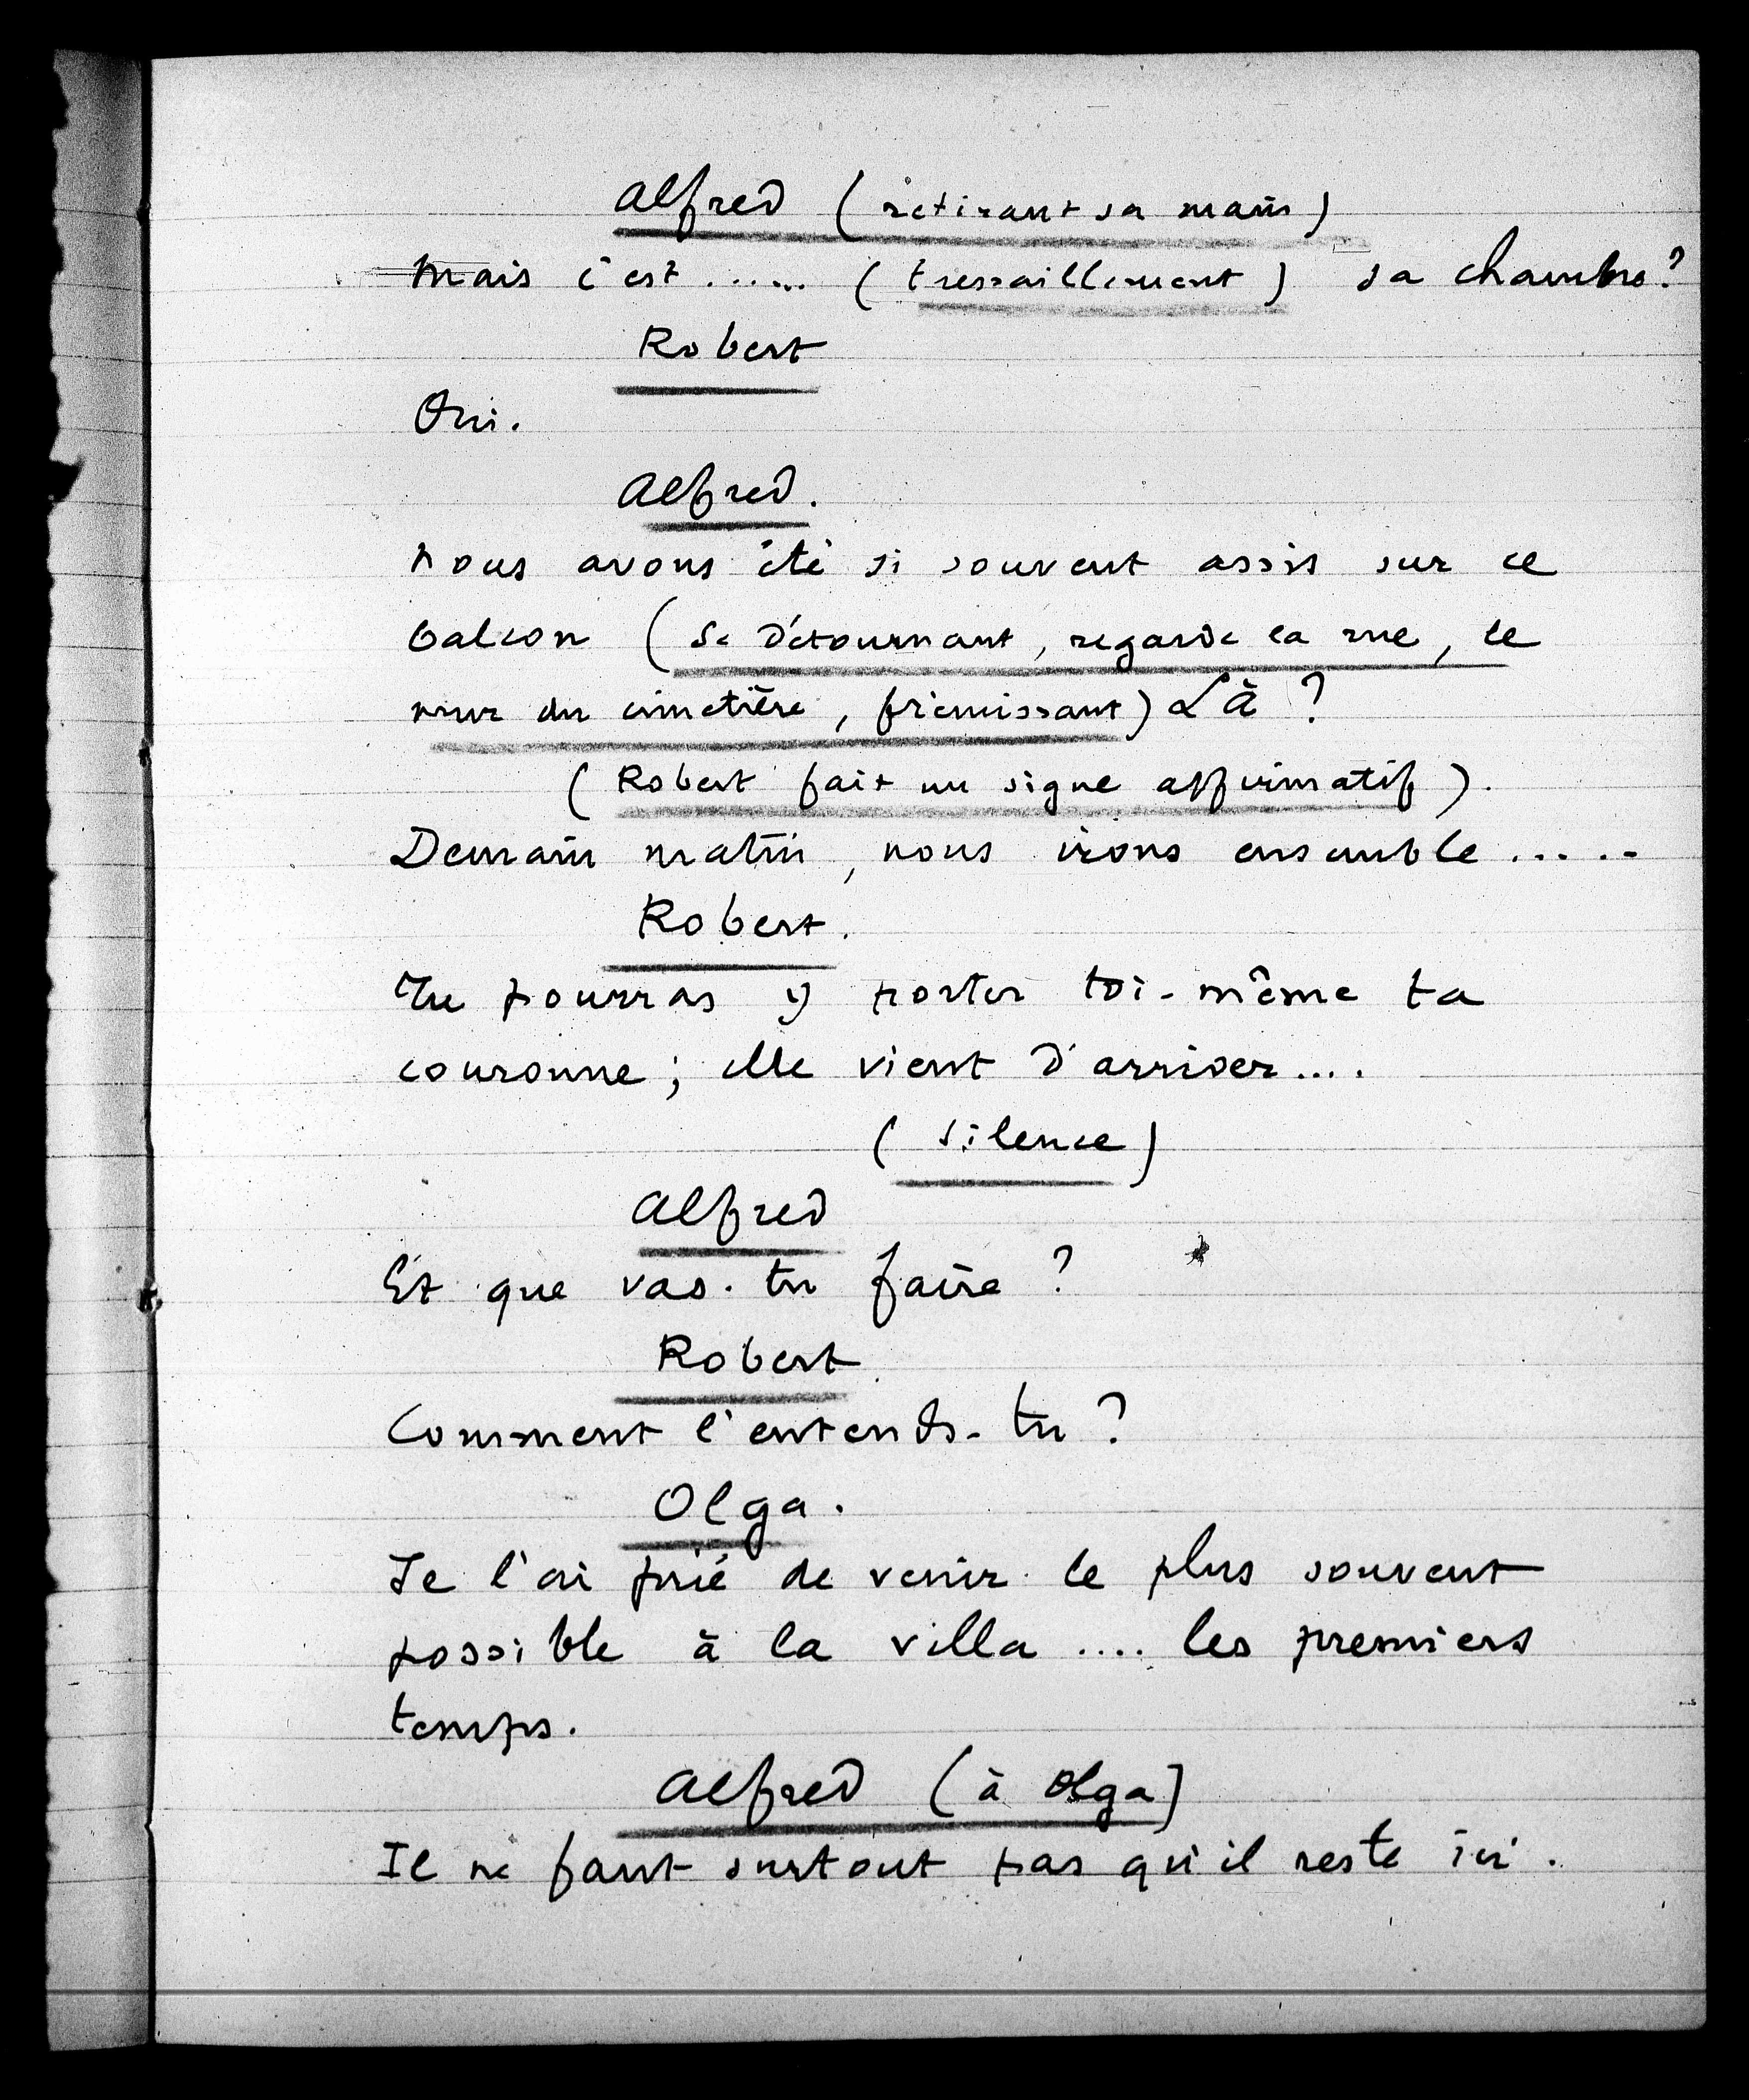 Alfred (retirant sa main)
Mais c'est ...... (tressaillement) sa chambre?
Robert
Oui.
Alfred.
Nous avons été si souvent assis sur ce
balcon (se détournant, regarde la rue, le
mur du cimetière, frémissant) Là ?
(Robert fait un signe affirmatif).
Demain matin, nous irons ensemble .....
Robert.
Tu pourras y porter toi-même ta
couronne; elle vient d'arriver....
(silence)
Alfred
Et que vas-tu faire ?
Robert
Comment l'entends-tu ?
Olga.
Je l'ai prié de venir le plus souvent
possible à la villa .... les premiers
temps.
Alfred (à Olga)
Il ne faut surtout pas qu'il reste ici.